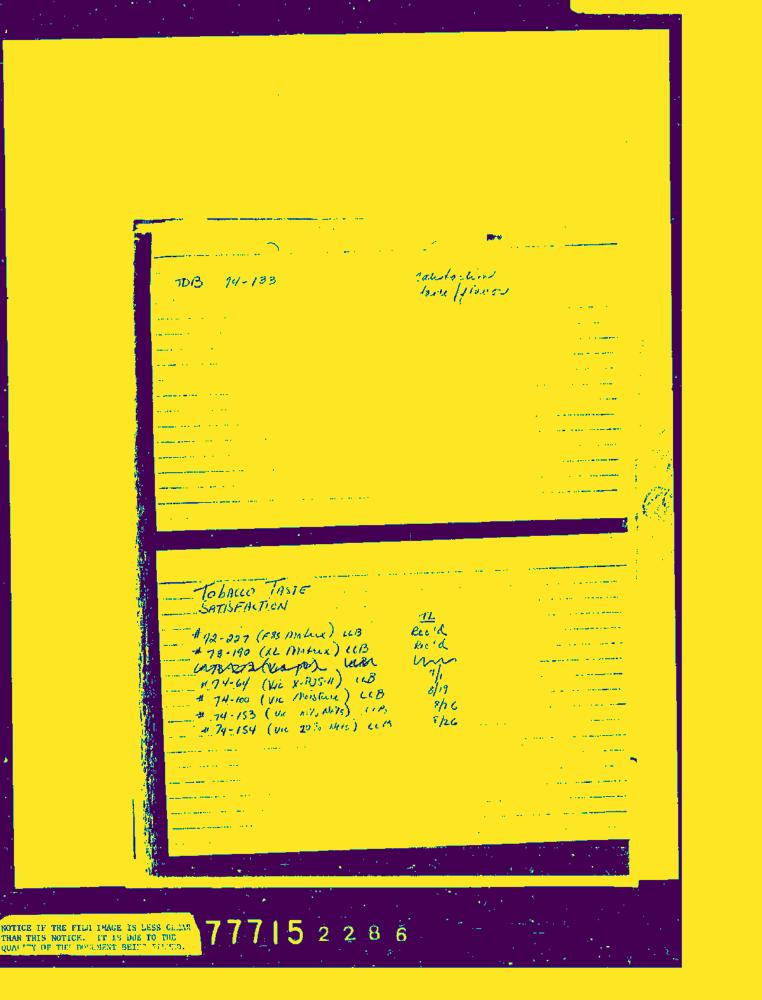 TDB 74-133 satisfaction
taste/flavor
TOBACCO TASTE
SATISFACTION
TL
# 72-227 (FSS Matrix) LLB Rec'd
# 73-190 (XL Matrix) LLB Rec'd
# 74-64 (Vic X-PJS-H) LLB 7/1
# 74-100 (Vic Moisture) LLB 8/19
# 74-153 (Vic Nets) 8/26
# 74-154 (Vic 20% Nets) LLB 8/26
NOTICE IF THE FILM IMAGE IS LESS CLEAR
THAN THIS NOTICE. IT IS DUE TO THE
QUALITY OF THE DOCUMENT BEING FILMED.
77715 2286